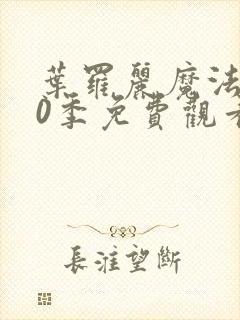 葉羅麗魔法
0季免費觀看
長淮望斷